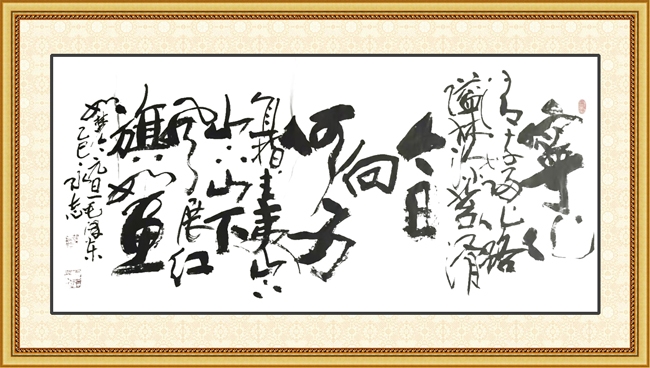 寧化
清流归化路
隘林深苔滑
今日
向
何方
直指武夷山下
山下山下
风展红
旗如畫
如梦令 元旦 毛泽东
乙巳